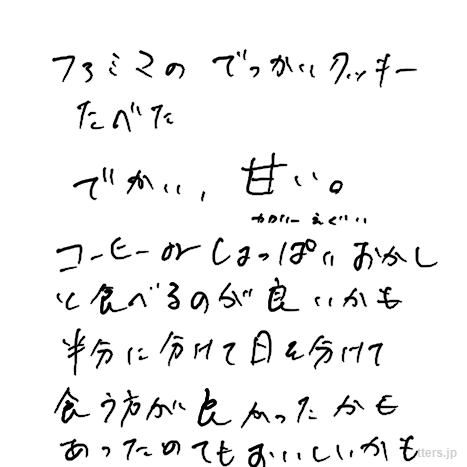 ファミマの でっかいクッキー
たべた
でかい、甘い。
カロリーえぐいい
コーヒーorしょっぱいおかし
と食べるのが良いかも
半分に分けて日を分けて
食う方が良かったかも
あっためてもおいしいかも
tters.jp